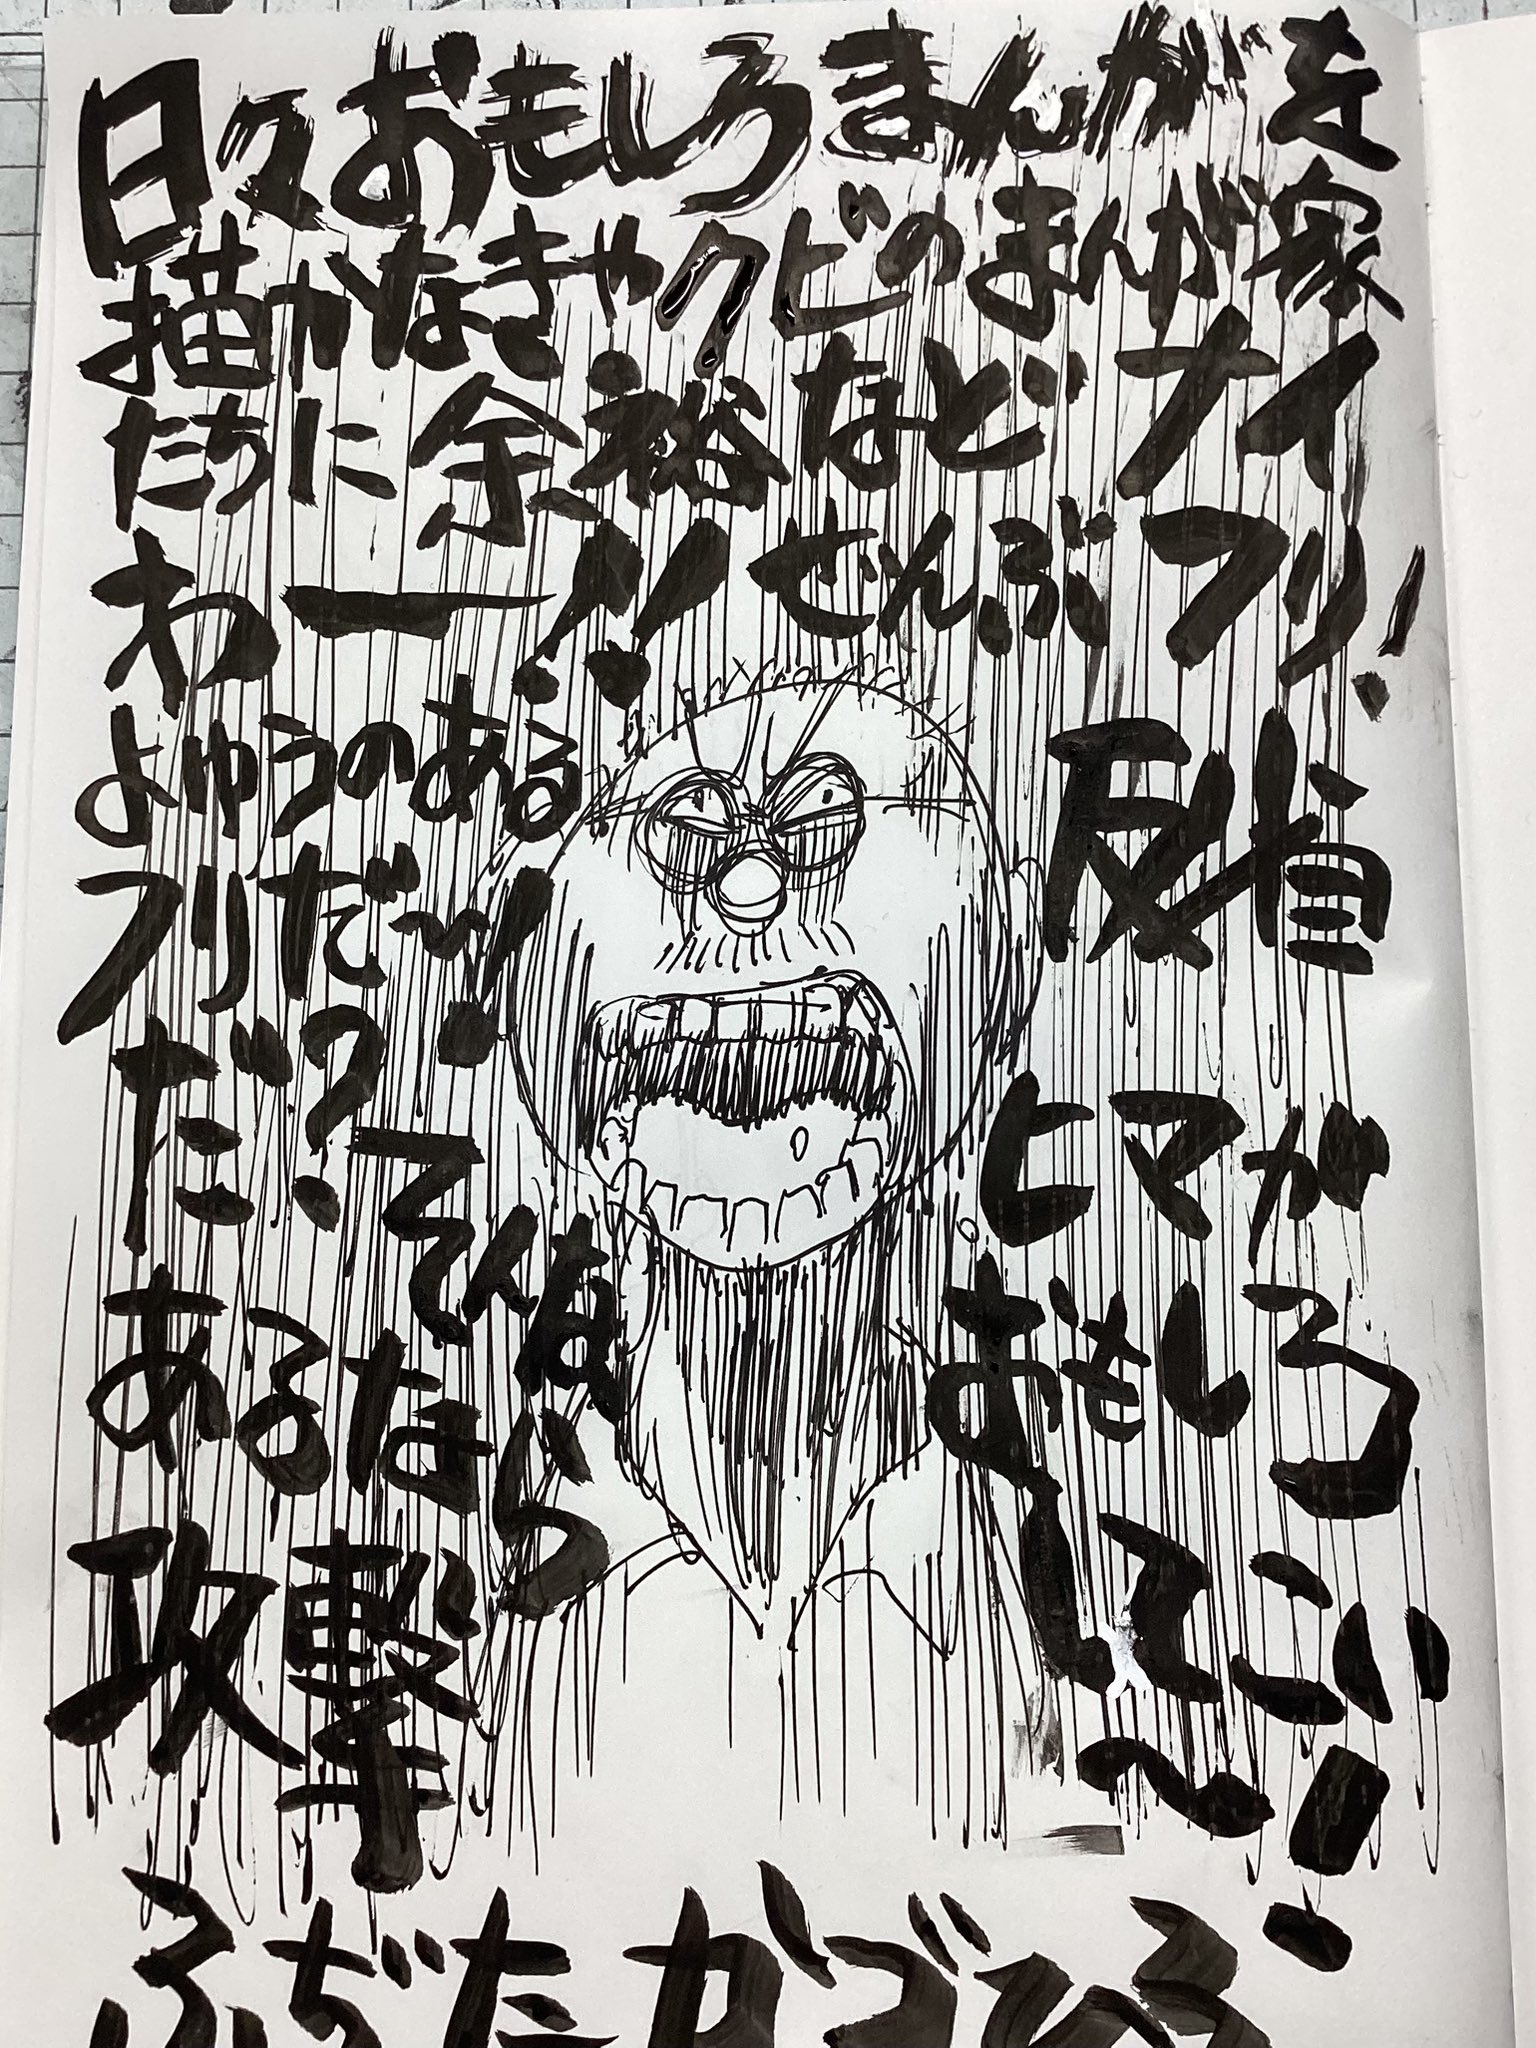 日々おもしろまんがを
描かなきゃクビのまんが家
たちに余裕などナイ
わー!! ぜんぶフリ!
よゆうのある
フリだ〜!
だ?そんな
あるなら
攻撃
反省
ヒマが
おもしろ
してこい
〜!!
ふぢたかづひろ